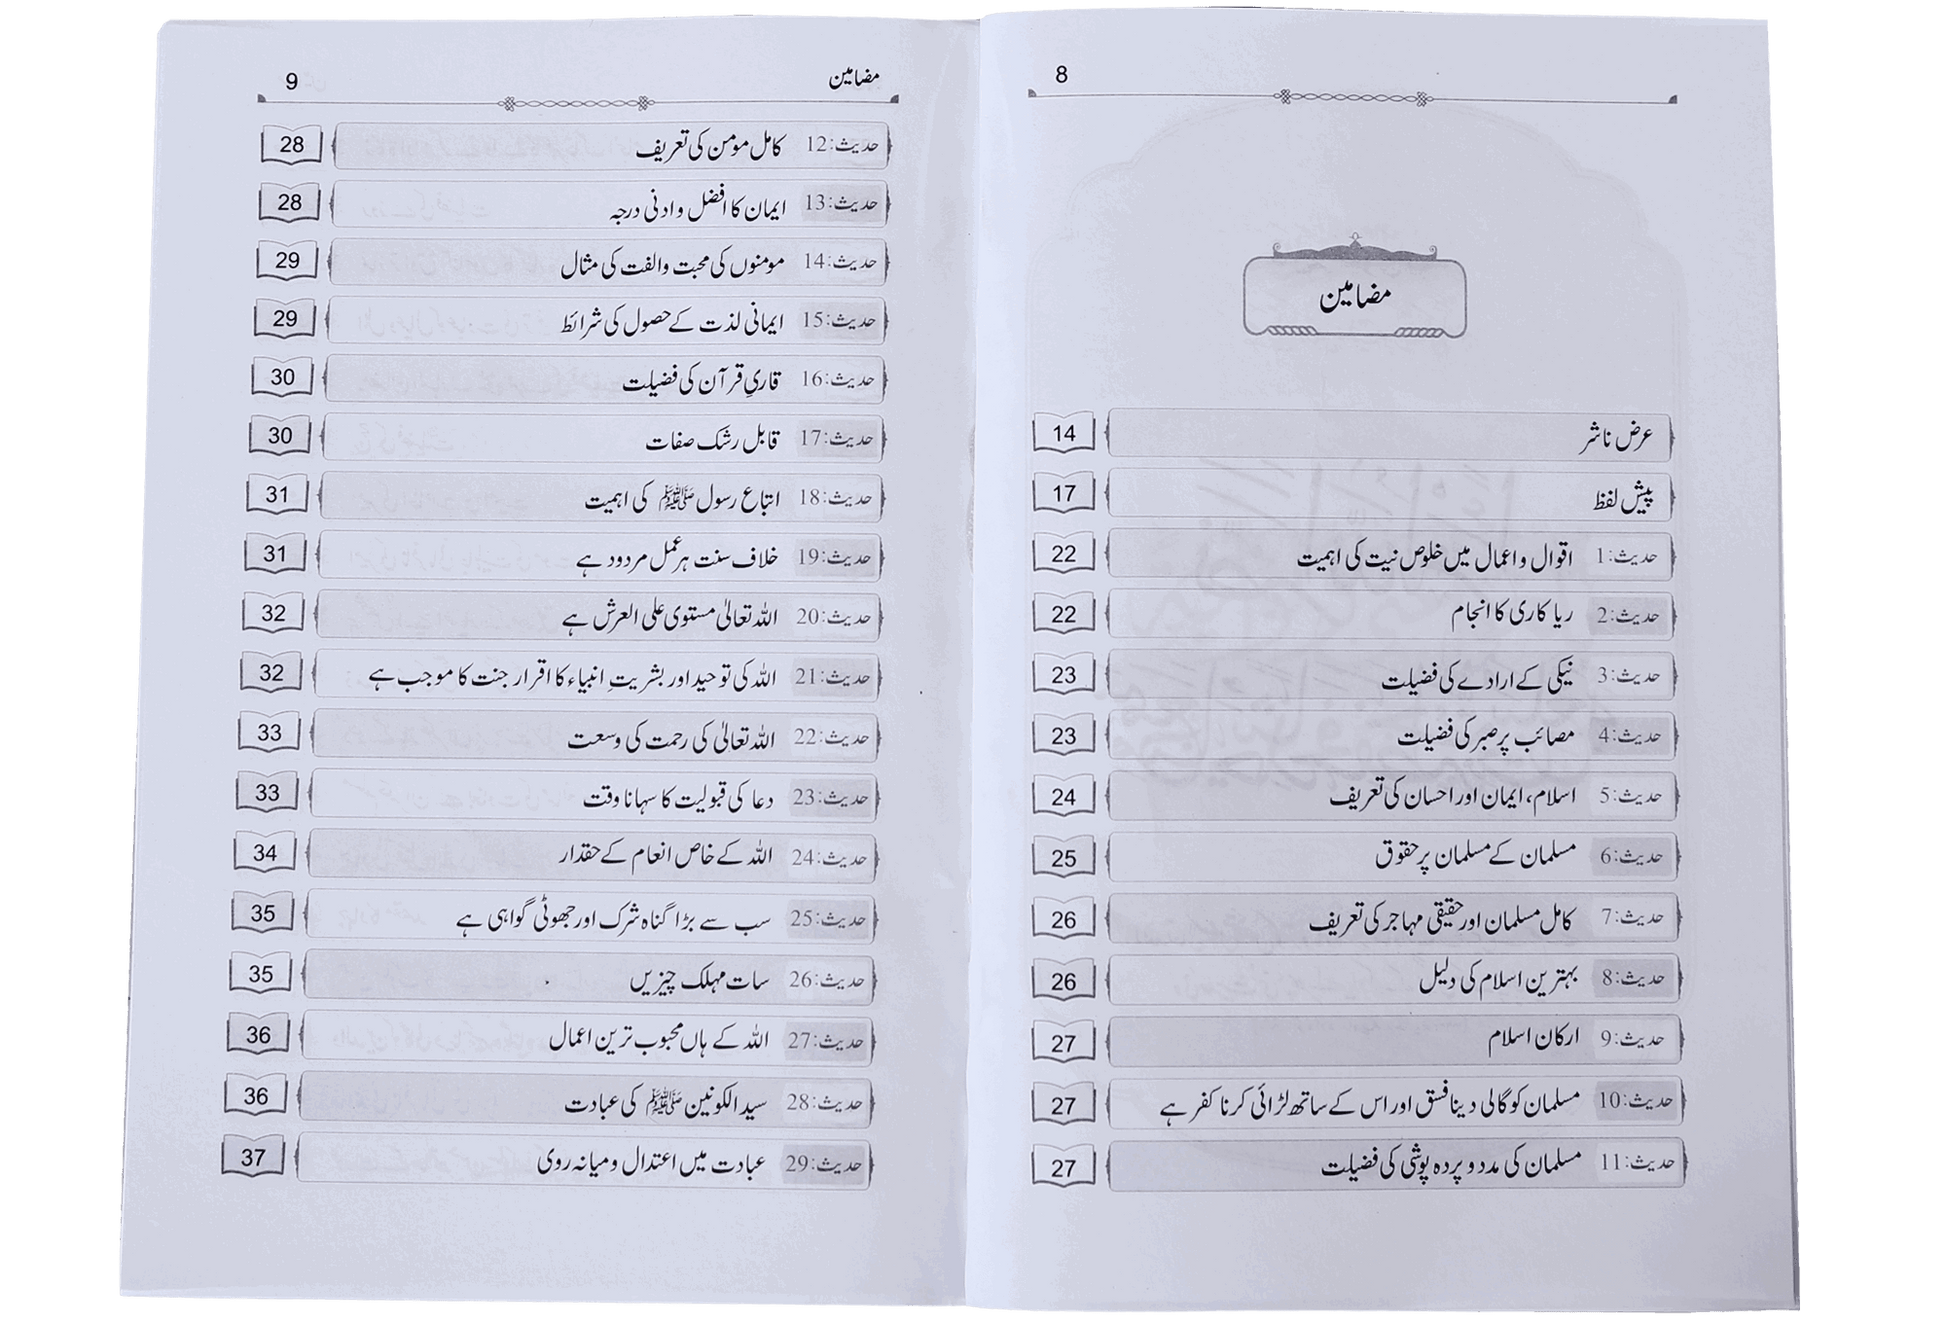 8
مضامین
عرض ناشر 14
پیش لفظ 17
حدیث:1 اقوال و اعمال میں خلوص نیت کی اہمیت 22
حدیث:2 ریا کاری کا انجام 22
حدیث:3 نیکی کے ارادے کی فضیلت 23
حدیث:4 مصائب پر صبر کی فضیلت 23
حدیث:5 اسلام، ایمان اور احسان کی تعریف 24
حدیث:6 مسلمان کے مسلمان پر حقوق 25
حدیث:7 کامل مسلمان اور حقیقی مہاجر کی تعریف 26
حدیث:8 بہترین اسلام کی دلیل 26
حدیث:9 ارکان اسلام 27
حدیث:10 مسلمان کو گالی دینا فسق اور اس کے ساتھ لڑائی کرنا کفر ہے 27
حدیث:11 مسلمان کی مدد و پردہ پوشی کی فضیلت 27
مضامین 9
حدیث:12 کامل مومن کی تعریف 28
حدیث:13 ایمان کا افضل و ادنی درجہ 28
حدیث:14 مومنوں کی محبت و الفت کی مثال 29
حدیث:15 ایمانی لذت کے حصول کی شرائط 29
حدیث:16 قاریِ قرآن کی فضیلت 30
حدیث:17 قابل رشک صفات 30
حدیث:18 اتباع رسول ﷺ کی اہمیت 31
حدیث:19 خلاف سنت ہر عمل مردود ہے 31
حدیث:20 اللہ تعالیٰ مستوی علی العرش ہے 32
حدیث:21 اللہ کی توحید اور بشریتِ انبیاء کا اقرار جنت کا موجب ہے 32
حدیث:22 اللہ تعالیٰ کی رحمت کی وسعت 33
حدیث:23 دعا کی قبولیت کا سہانا وقت 33
حدیث:24 اللہ کے خاص انعام کے حقدار 34
حدیث:25 سب سے بڑا گناہ شرک اور جھوٹی گواہی ہے 35
حدیث:26 سات مہلک چیزیں 35
حدیث:27 اللہ کے ہاں محبوب ترین اعمال 36
حدیث:28 سید الکونین ﷺ کی عبادت 36
حدیث:29 عبادت میں اعتدال و میانہ روی 37